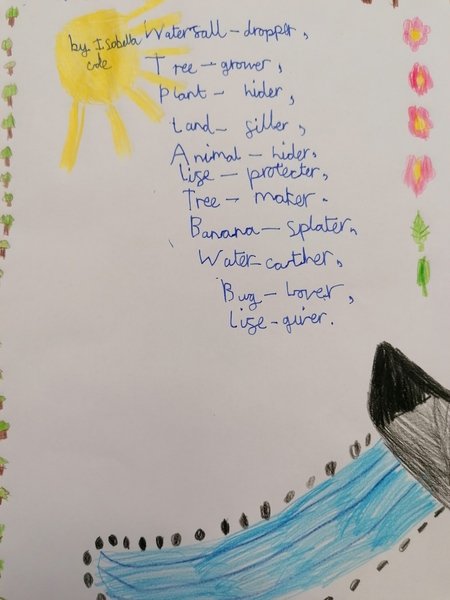 by Isabella
cole
Waterfall - dropper,
Tree - grower,
Plant - hider,
Land - filler,
Animal - hider,
Life - protecter,
Tree - maker.
Banana - splater,
Water - catcher,
Bug - Lover,
Life - giver.